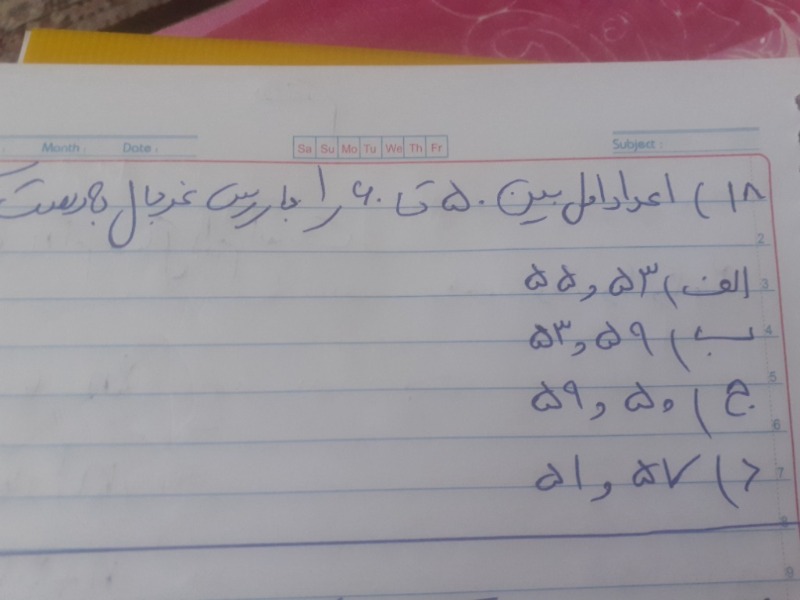 Month : Date :
Sa Su Mo Tu We Th Fr
Subject :
۱۸) اعداد اول بین ۵۰ تا ۶۰ را با روش غربال بدست
2
الف) ۵۳ و ۵۵ 3
ب) ۵۹ و ۵۳ 4
5
ج) ۵۰ و ۵۹
6
د) ۵۷ و ۵۱ 7
8
9